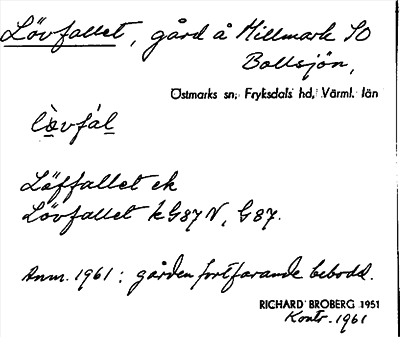 Lövfallet, gård å Hillmark SO
Bollsjön,
Östmarks sn, Fryksdals hd, Värml. län
lòvfál
Löffallet ek
Lövfallet kG87N, G87.
Anm. 1961: gården fortfarande bebodd.
RICHARD BROBERG 1951
Kontr. 1961